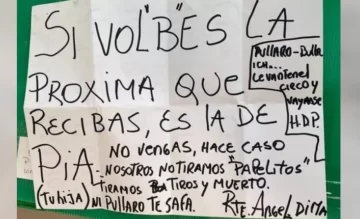 SI VOL"BES LA
PROXIMA QUE
RECIBAS, ES LA DE
PIA.
(TU HIJA)
PULLARO-
LEVANTEN EL
CIRCO Y
VAYANSE
H.D.P.
NO VENGAS, HACE CASO
NOSOTROS NO TIRAMOS "PAPELITOS"
TIRAMOS TIROS Y MUERTO.
NI PULLARO TE SAFA. RTE. ANGEL DI MA